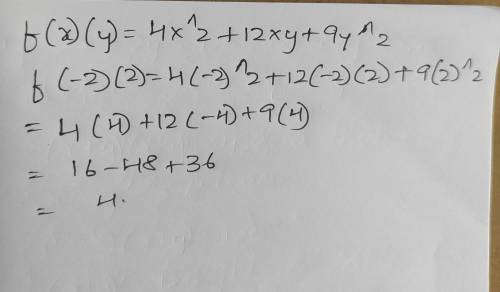 f(x)(y) = 4x^2 + 12xy + 9y^2
f(-2)(2) = 4(-2)^2 + 12(-2)(2) + 9(2)^2
= 4(4) + 12(-4) + 9(4)
= 16 - 48 + 36
= 4.